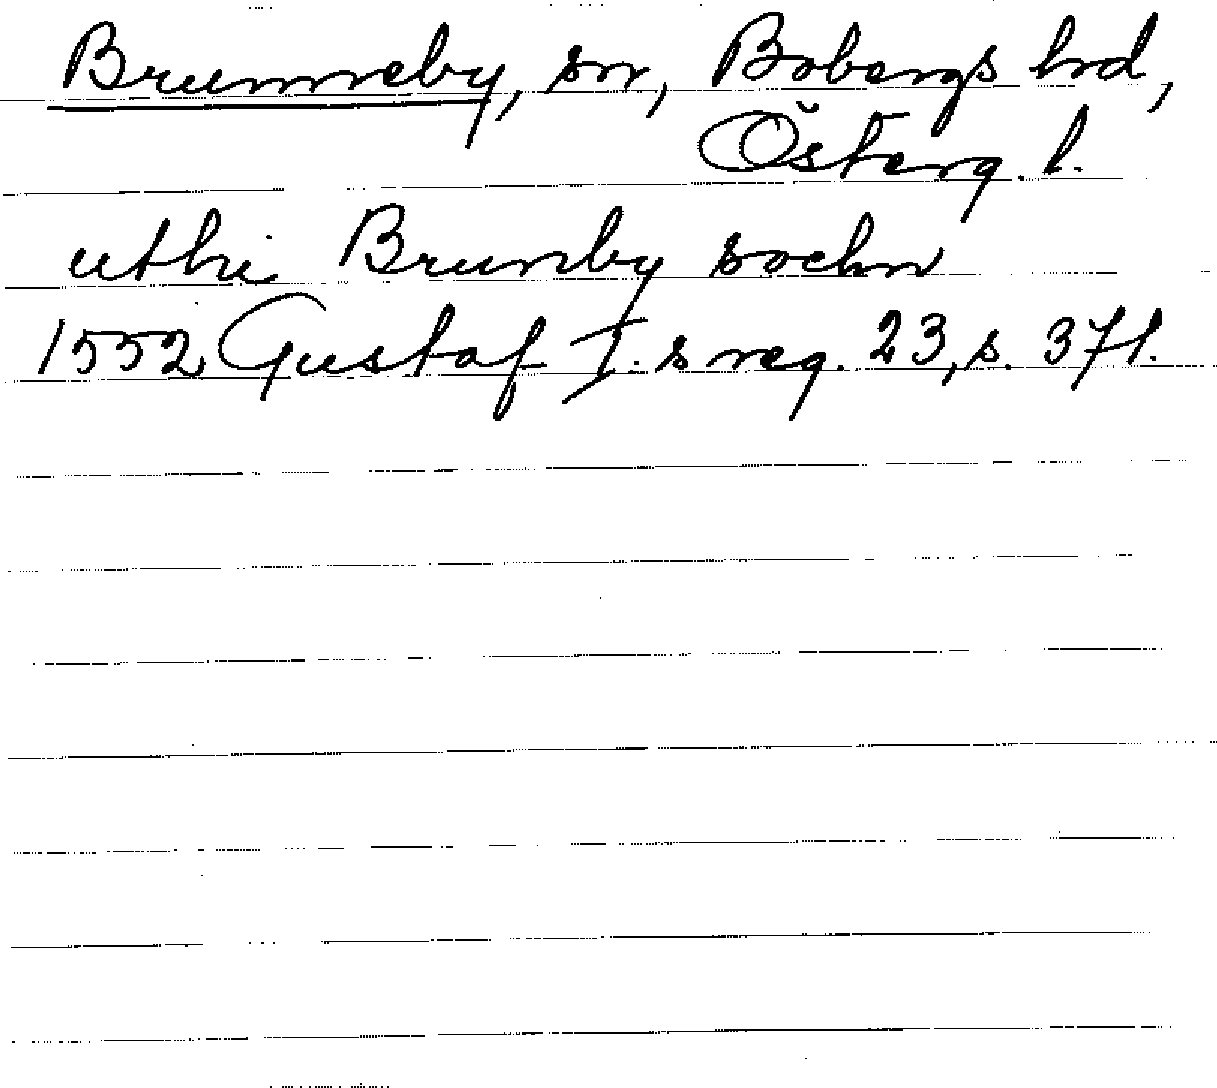 Brunneby, sn, Bobergs hrd,
Österg. l.
uthi Brunby sochn
1552 Gustaf I:s reg. 23, s. 371.